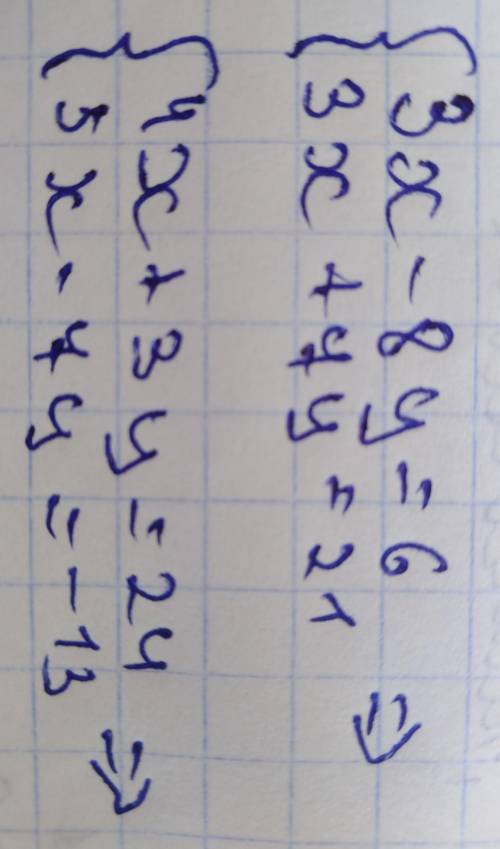 { 3x - 8y = 6
3x + 7y = 21 ⇒
{ 4x + 3y = 24
5x - 7y = -13 ⇒